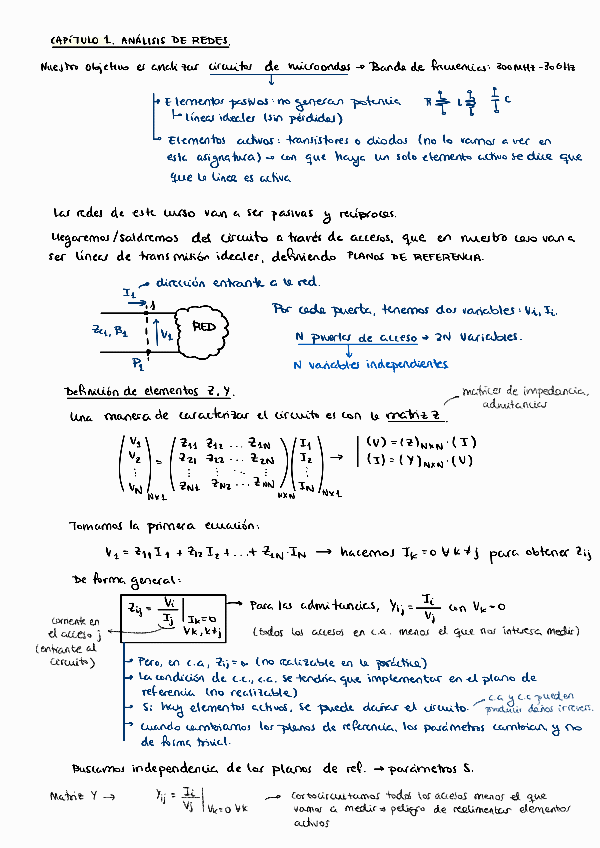 CAPÍTULO 1. ANÁLISIS DE REDES.
Nuestro objetivo es analizar circuitos de microondas → Banda de frecuencias: 300MHz-30GHz
Elementos pasivos: no generan potencia R L C
líneas ideales (sin pérdidas)
Elementos activos: transistores o diodos (no lo vamos a ver en
esta asignatura) → con que haya un solo elemento activo se dice que
que la línea es activa
Las redes de este curso van a ser pasivas y recíprocas.
Llegaremos/saldremos del circuito a través de accesos, que en nuestro caso van a
ser líneas de transmisión ideales, definiendo PLANOS DE REFERENCIA.
dirección entrante a la red.
I1
1
Zc1, β1
V1
RED
P1
Por cada puerta, tenemos dos variables: Vi, Ii.
N puertas de acceso → 2N variables.
N variables independientes
Definición de elementos Z, Y.
matrices de impedancia,
admitancias
Una manera de caracterizar el circuito es con la matriz Z
(V1 V2 ⋮ VN)N×1 = (Z11 Z12 ... Z1N Z21 Z22 ... Z2N ⋮ ZN1 ZN2 ... ZNN)N×N (I1 I2 ⋮ IN)N×1 → | (V) = (Z)N×N · (I)
(I) = (Y)N×N · (V)
Tomamos la primera ecuación:
V1 = Z11 I1 + Z12 I2 + ... + Z1N · IN → hacemos Ik=0 ∀k≠j para obtener Zij
De forma general:
Zij = Vi/Ij | Ik=0 ∀k, k≠j
→ Para las admitancias, Yij = Ii/Vj con Vk=0
(todos los accesos en c.a. menos el que nos interesa medir)
corriente en
el acceso j
(entrante al
circuito)
Pero, en c.a, Zij=∞ (no realizable en la práctica)
La condición de c.c., c.a. se tendría que implementar en el plano de
referencia (no realizable)
Si hay elementos activos, se puede dañar el circuito.
c.a y c.c pueden
producir daños irrevers.
cuando cambiamos los planos de referencia, los parámetros cambian, y no
de forma trivial.
Buscamos independencia de los planos de ref. → parámetros S.
Matriz Y → Yij = Ii/Vj | Vk=0 ∀k → Cortocircuitamos todos los accesos menos el que
vamos a medir → peligro de realimentar elementos
activos